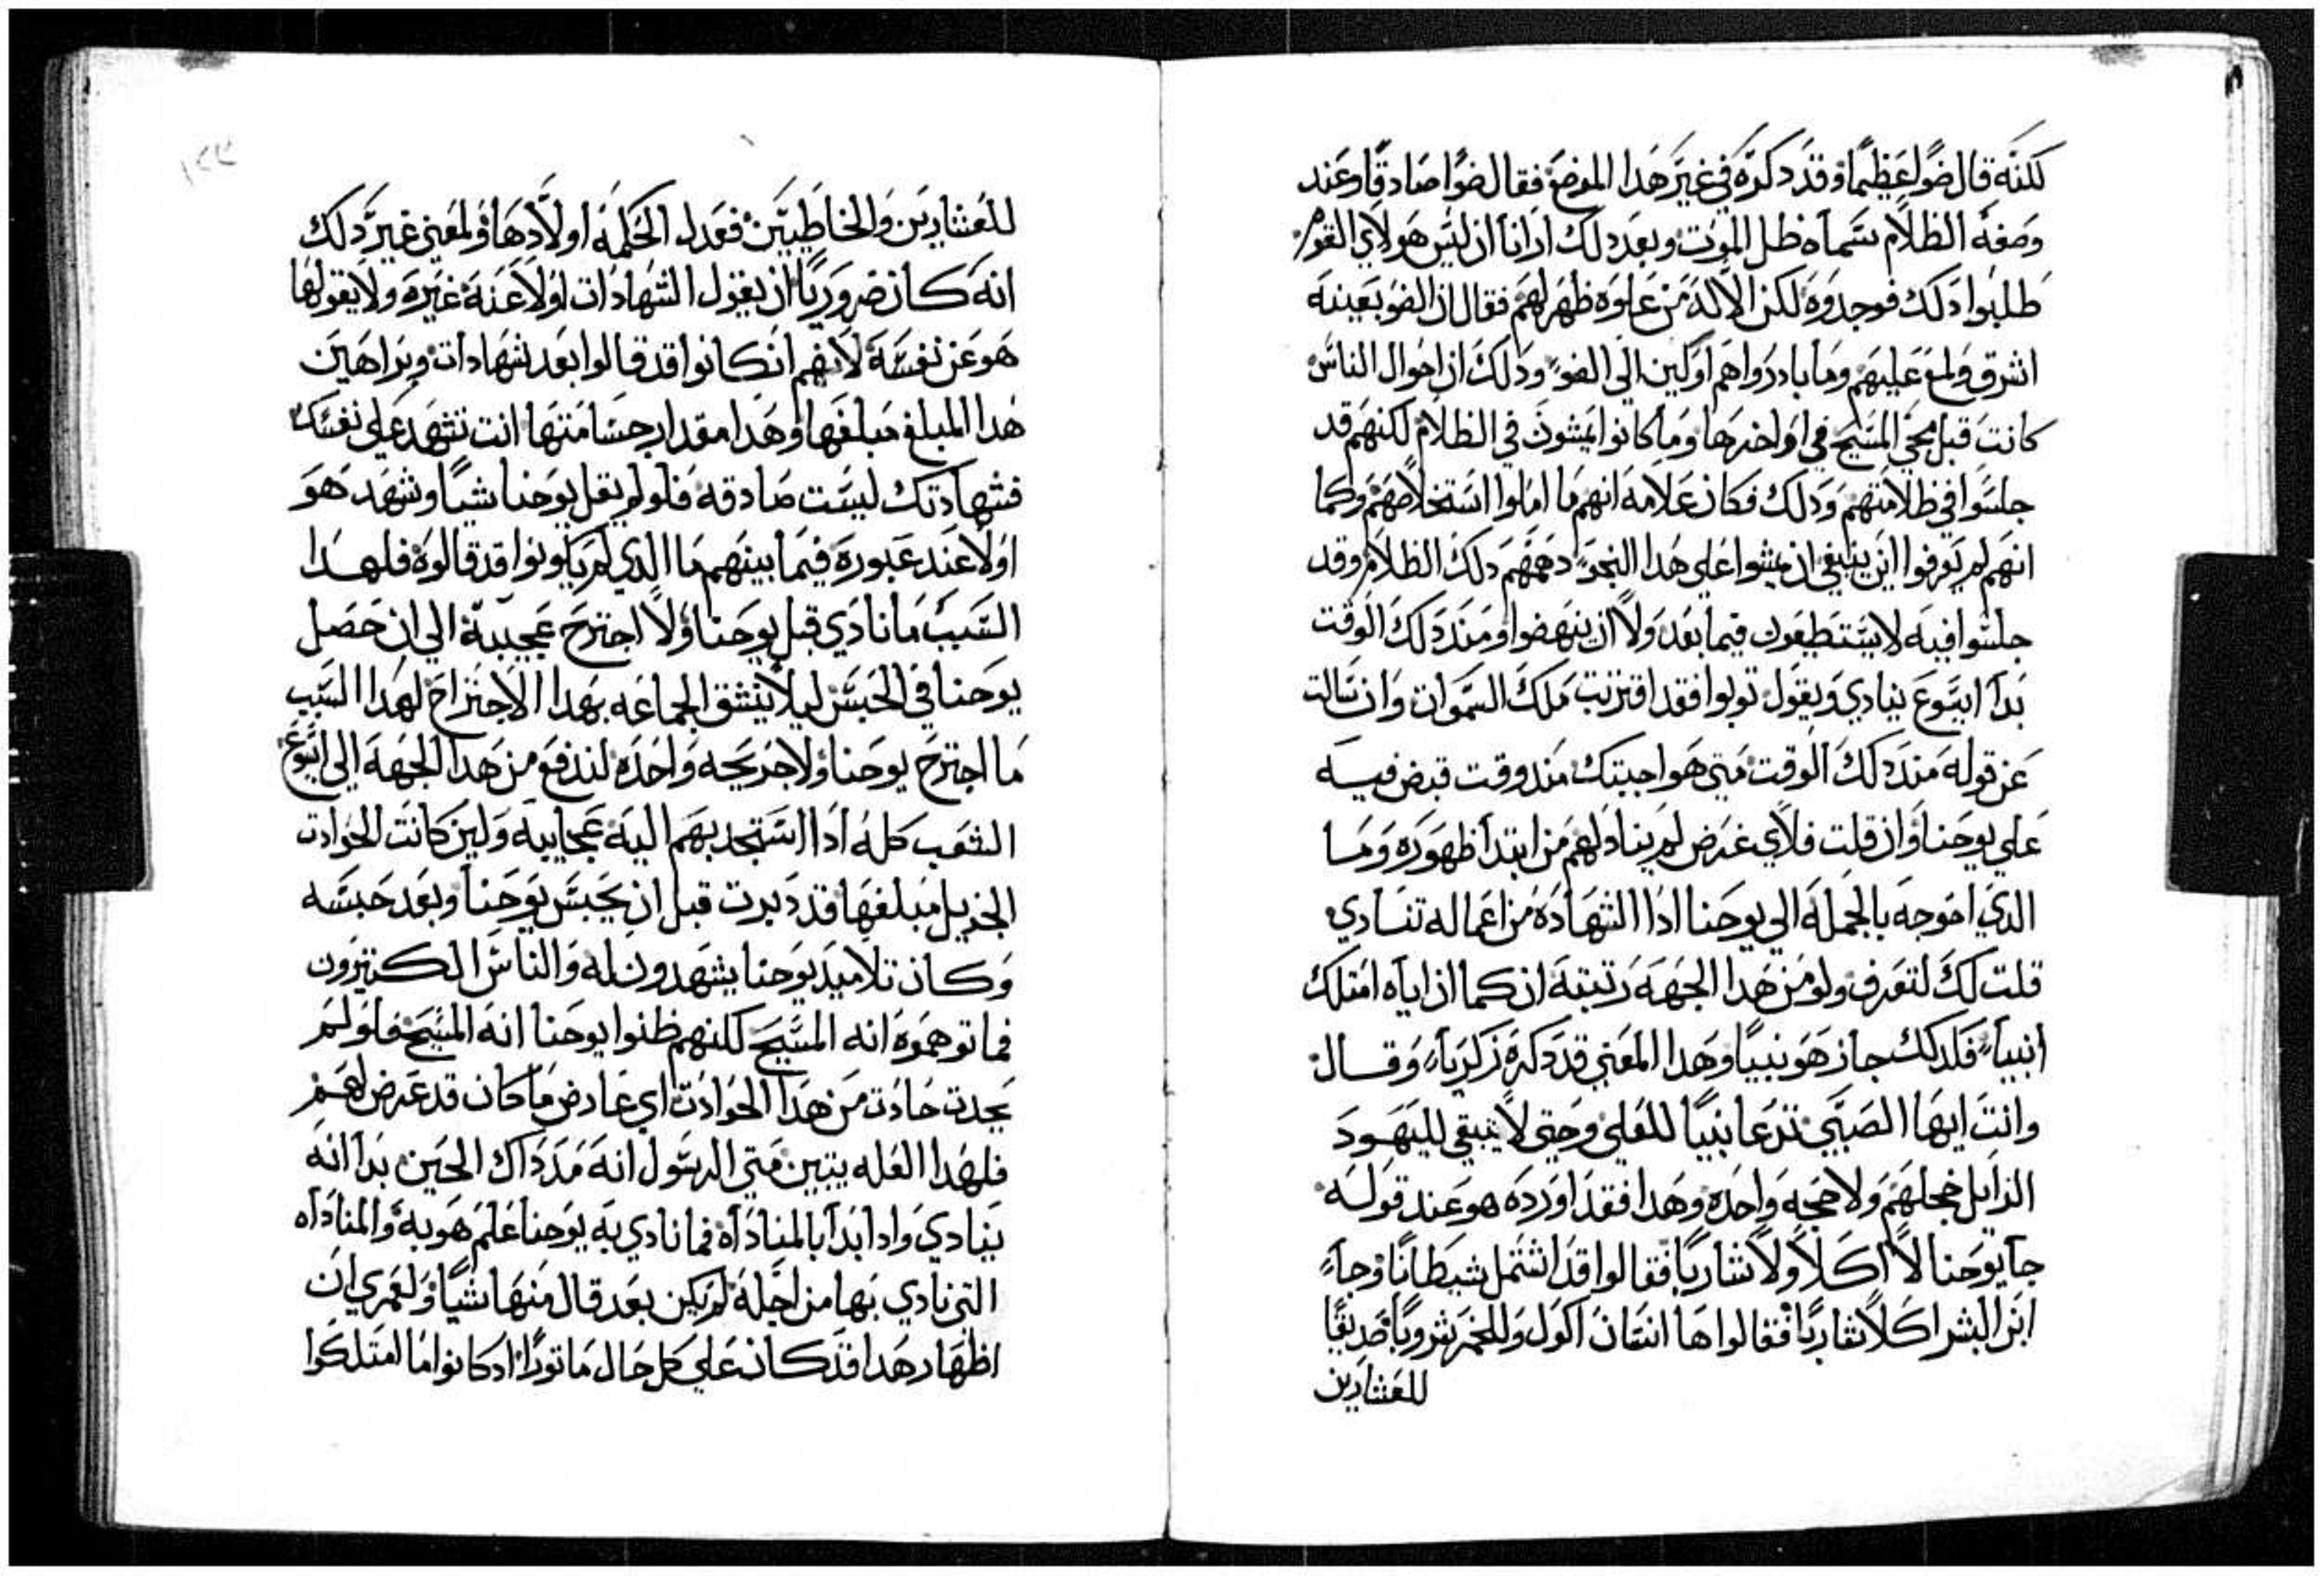 لكنه قال ضوًا عظيمًا وقد دكره في غير هدا الموضع فقال ضوًا صادقًا وعند
وصفه الظلام سماه ظل الموت وبعد دلك ارانا ان ليس هولاي القوم
طلبوا دلك فوجدوه لكن الاله من علوه ظهر لهم فقال ان الضو بعينه
اشرق ولمع عليهم وما بادروا هم اولين الي الضو ودلك ان احوال الناس
كانت قبل مجي المسيح في اواخرها وما كانوا يمشون في الظلام لكنهم قد
جلسوا في ظلامتهم ودلك فكان علامه انهم ما املوا استخلاصهم وكما
انهم لم يعرفوا اين ينبغي ان يمشوا علي هدا النحو دهمهم دلك الظلام وقد
جلسوا فيه لا يستطيعون فيما بعد ولا ان ينهضوا ومند دلك الوقت
بدا ايسوع ينادي ويقول توبوا فقد اقتربت ملك السموات وان سالت
عن قوله مند دلك الوقت متي هو اجبتك مند وقت قبض فيه
علي يوحنا وان قلت فلاي غرض لم يناد لهم من ابتدا ظهوره وما
الدي احوجه بالجمله الي يوحنا ادا الشهاده من اعماله تنادي
قلت لك لتعرف ولو من هدا الجهه رتبته ان كما ان اياه امتلك
انبياء فلدلك جاز هو نبيًا وهدا المعني قد دكره زكرياء وقال
وانت ايها الصبي تدعا نبيًا للعلي وحتي لا يبقي لليهود
الزايل خجلهم ولا حجه واحده وهدا فقد اورده هو عند قوله
جا يوحنا لا اكلًا ولا شاربًا فقالوا قد اشتمل شيطانًا وجاء
ابن البشر اكلًا شاربًا فقالوا ها انسان اكول وللخمر شروبًا صديقًا
للعشارين
للعشارين والخاطيين فعدل الحكمه اولادها والمعني غير دلك
انه كان ضروريًا ان يقول الشهادات اولًا عنه غيره ولا يقولها
هو عن نفسه لانهم ان كانوا قد قالوا بعد شهادات وبراهين
هدا المبلغ مبلغها وهدا مقدار جسامتها انت تشهد علي نفسك
فشهادتك ليست صادقه فلو لم يقل يوحنا شيًا وشهد هو
اولًا عند عبوره فيما بينهم ما الدي لم يكونوا قد قالوه فلهدا
السبب ما نادي قبل يوحنا ولا اجترح عجيبه الي ان حصل
يوحنا في الحبس ليلا ينشق الجماعه بهدا الاجتراح لهدا السبب
ما اجترح يوحنا ولا جريحه واحده لندفع من هدا الجهه الي ايسوع
الشعب كله ادا استجدبهم اليه عجاييه ولين كانت الحوادت
الجزيل مبلغها قد دبرت قبل ان يحبس يوحنا وبعد حبسه
وكان تلاميد يوحنا يشهدون له والناس الكتيرون
فما توهموه انه المسيح لكنهم ظنوا يوحنا انه المسيح فلو لم
يحدت حادت من هدا الحوادت اي عارض ما كان قد عرض لهم
فلهدا العله يتبين متي الرسول انه مد داك الحين بدا انه
ينادي وادا بدا بالمناداه فما نادي به يوحنا علم هو به والمناداه
التي نادي بها من اجله لم يكن بعد قال منها شيًا ولعمري ان
اظهار هدا قد كان علي كل حال ماتورًا اد كانوا ما امتلكوا